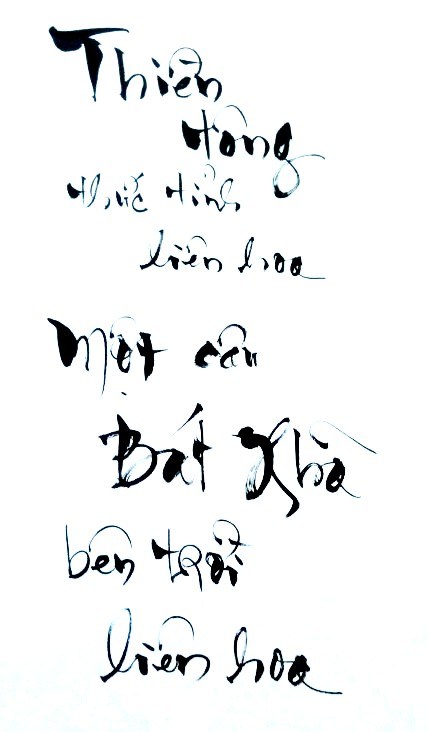 Thiền
tông
thức tỉnh
liên hoa
Một câu
Bát Nhã
bên trời
liên hoa